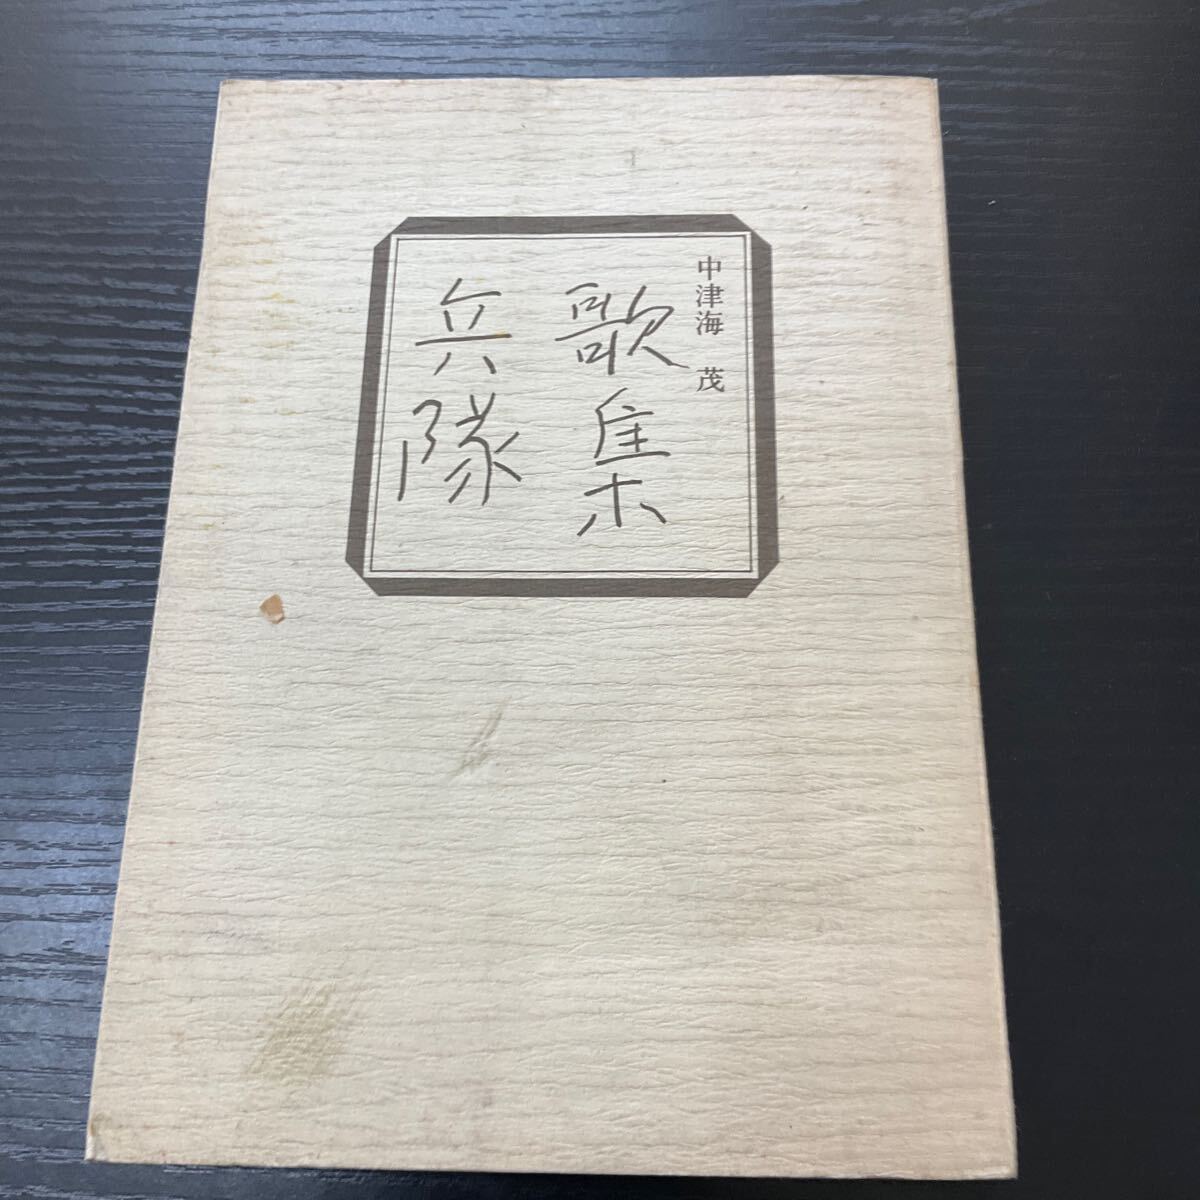 中津海 茂
歌集
兵隊